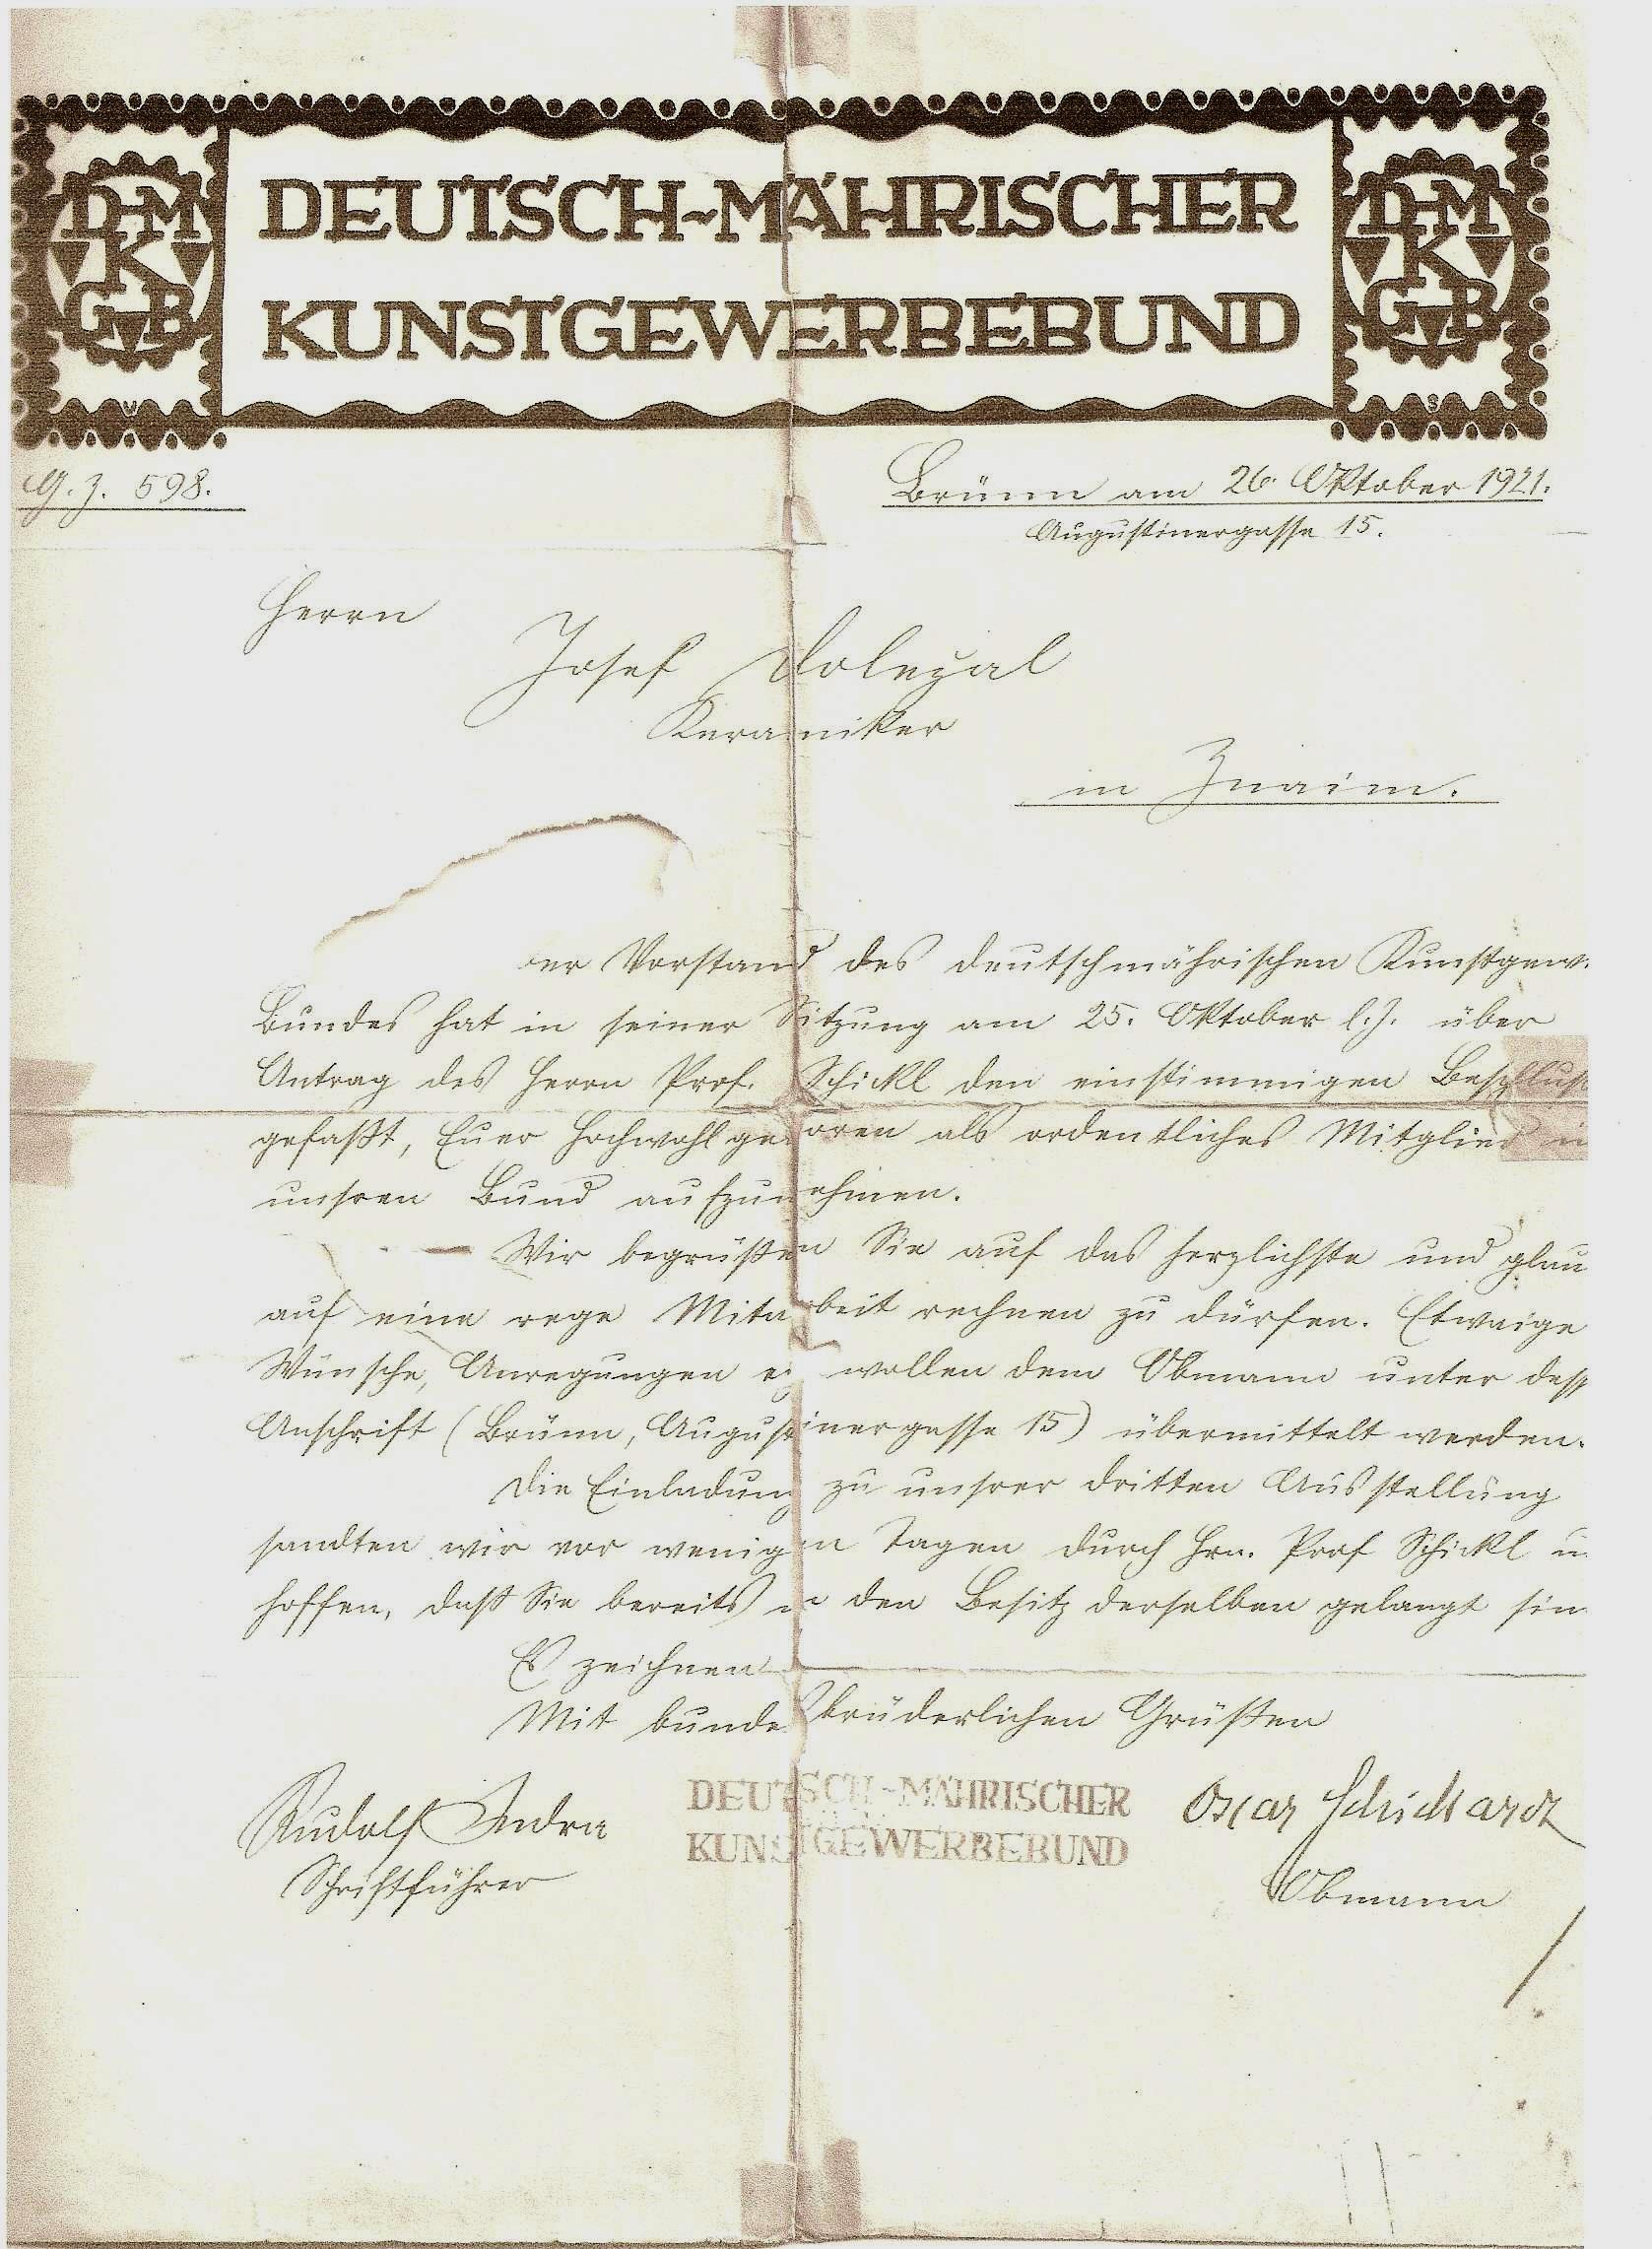 DEUTSCH-MÄHRISCHER
KUNSTGEWERBEBUND
D-M
K
GB
D-M
K
GB
G. Z. 598.
Brünn am 26. Oktober 1921.
Augustinergasse 15.
Herrn
Josef Doležal
Keramiker
in Znaim.
er Vorstand des deutschmährischen Kunstgew.
Bundes hat in seiner Sitzung am 25. Oktober l. J. über
Antrag des Herrn Prof. Schickl den einstimmigen Beschluß
gefaßt, Euer Hochwohlgeboren als ordentliches Mitglied in
unsren Bund aufzunehmen.
Wir begrüßen Sie auf das herzlichste und glau
auf eine rege Mitarbeit rechnen zu dürfen. Etwaige
Wünsche, Anregungen wollen dem Obmann unter dess
Anschrift (Brünn, Augustinergasse 15) übermittelt werden.
Die Einladung zu unsrer dritten Ausstellung
sandten wir vor wenigen Tagen durch Hrn. Prof Schickl u.
hoffen, daß Sie bereits in den Besitz derselben gelangt sin
Es zeichnen
Mit bundesbrüderlichen Grüßen
Rudolf Indra
Schriftführer
DEUTSCH-MÄHRISCHER
KUNSTGEWERBEBUND
Oscar Schichardt
Obmann